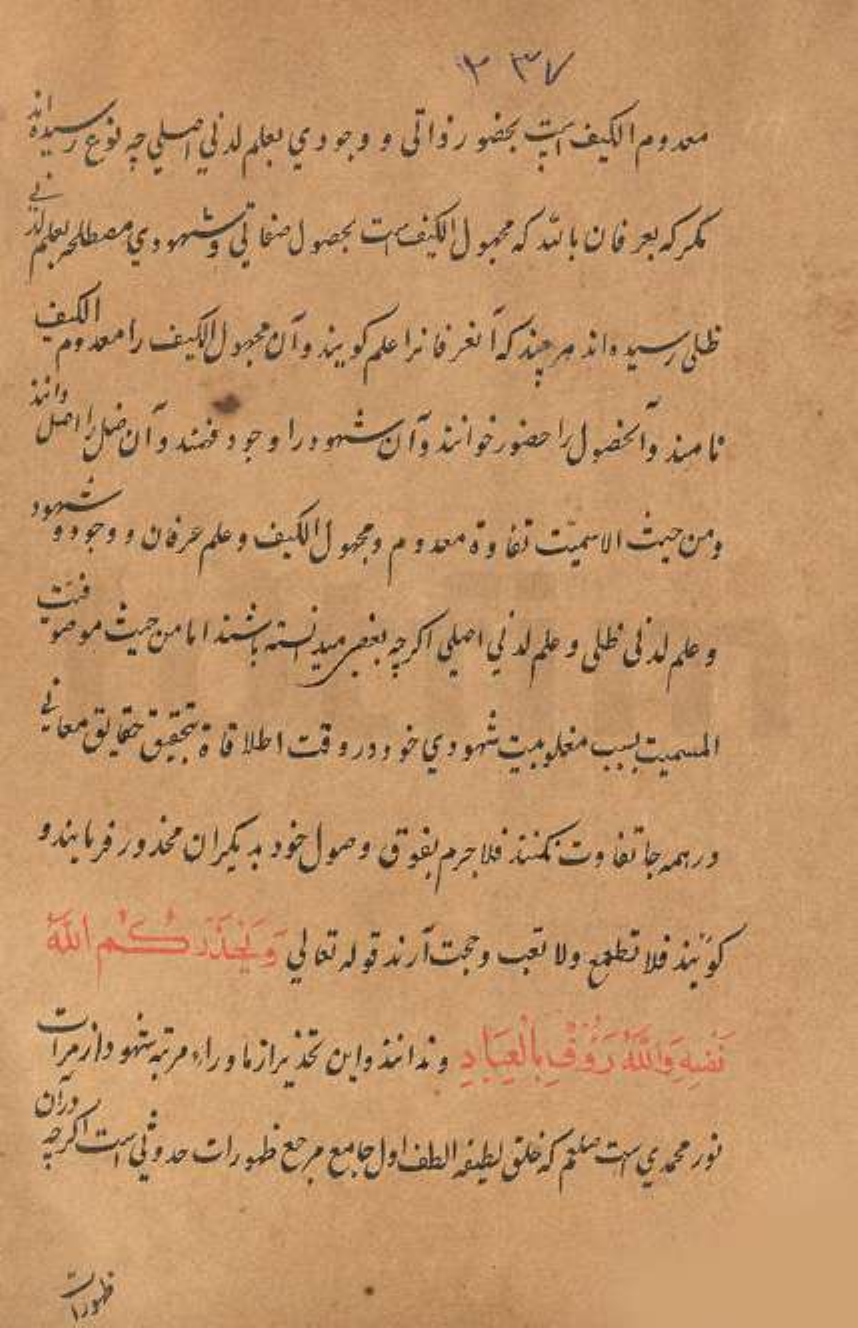 ٢٣٧
معدوم الكيف است بحضور ذواتى و وجودي بعلم لدني اصلي چه نوع رسيده اند
مكر كه بعرفان بالله كه مجهول الكيف است بحصول صفاتي و شهودي مصطلحه بعلم لدني
ظلى رسيده اند هر چند كه آنعرفانرا علم كويند و آن مجهول الكيف را معدوم الكيف
نامند و آنحصول را حضور خوانند و آن شهود را وجود فهمند و آن ظل را اصل دانند
ومن حيث الاسميت تفاوة معدوم و مجهول الكيف و علم عرفان و وجود و شهود
و علم لدنى ظلى و علم لدني اصلى اكرچه بعضى ميدانسته باشند اما من حيث موصوفيت
المسميت بسبب مغلوبيت شهودي خود در وقت اطلاقاة بتحقيق حقايق معاني
در همه جا تفاوت نكنند فلاجرم بفوق وصول خود بديكران محذور فرمايند و
كويند فلا تطمع ولا تعب و حجت آرند قوله تعالي وَيُحَذِّرُكُمُ اللّٰهُ
نَفْسَهُ وَاللّٰهُ رَؤُفٌ بِالْعِبَادِ و ندانند و اين تحذير از ما وراء مرتبه شهود از مرات
نور محمدي است صلعم كه خلق لطيفه الطف اول جامع مرجع ظهورات حدوثي است اكرچه در آن
ظهورات